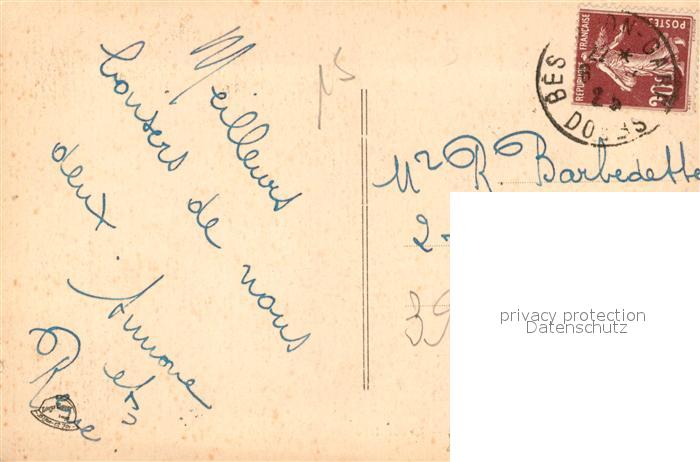 Meilleurs
baisers de nous
deux.
Simone
et
René
15
Mr R. Barbedette
2
39
REPUBLIQUE FRANÇAISE
POSTES
BES ON-GARE
DOUBS
privacy protection
Datenschutz